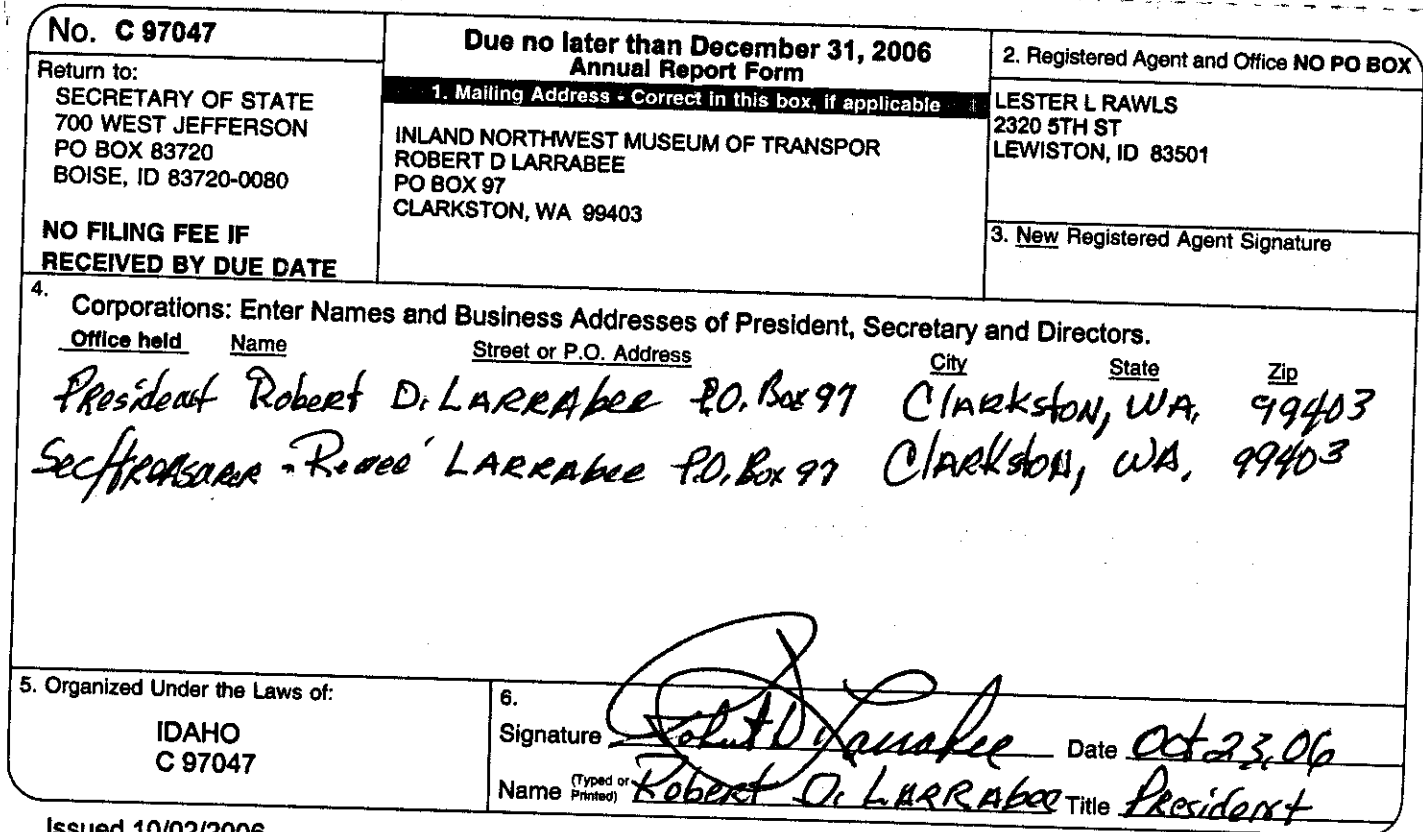 No. C 97047
Return to:
SECRETARY OF STATE
700 WEST JEFFERSON
PO BOX 83720
BOISE, ID 83720-0080
NO FILING FEE IF
RECEIVED BY DUE DATE
Due no later than December 31, 2006
Annual Report Form
1. Mailing Address - Correct in this box, if applicable
INLAND NORTHWEST MUSEUM OF TRANSPOR
ROBERT D LARRABEE
PO BOX 97
CLARKSTON, WA 99403
2. Registered Agent and Office NO PO BOX
LESTER L RAWLS
2320 5TH ST
LEWISTON, ID 83501
3. New Registered Agent Signature
4. Corporations: Enter Names and Business Addresses of President, Secretary and Directors.
Office held Name Street or P.O. Address City State Zip
President Robert D. LARRAbee P.O. Box 97 ClARKstoN, WA. 99403
Sec/TReasurer - Reneé LARRAbee P.O. Box 97 ClARKstoN, WA. 99403
5. Organized Under the Laws of:
IDAHO
C 97047
6.
Signature Robert D Larrabee Date Oct 23, 06
Name (Typed or Printed) Robert D. LARRAbee Title President
Issued 10/02/2006